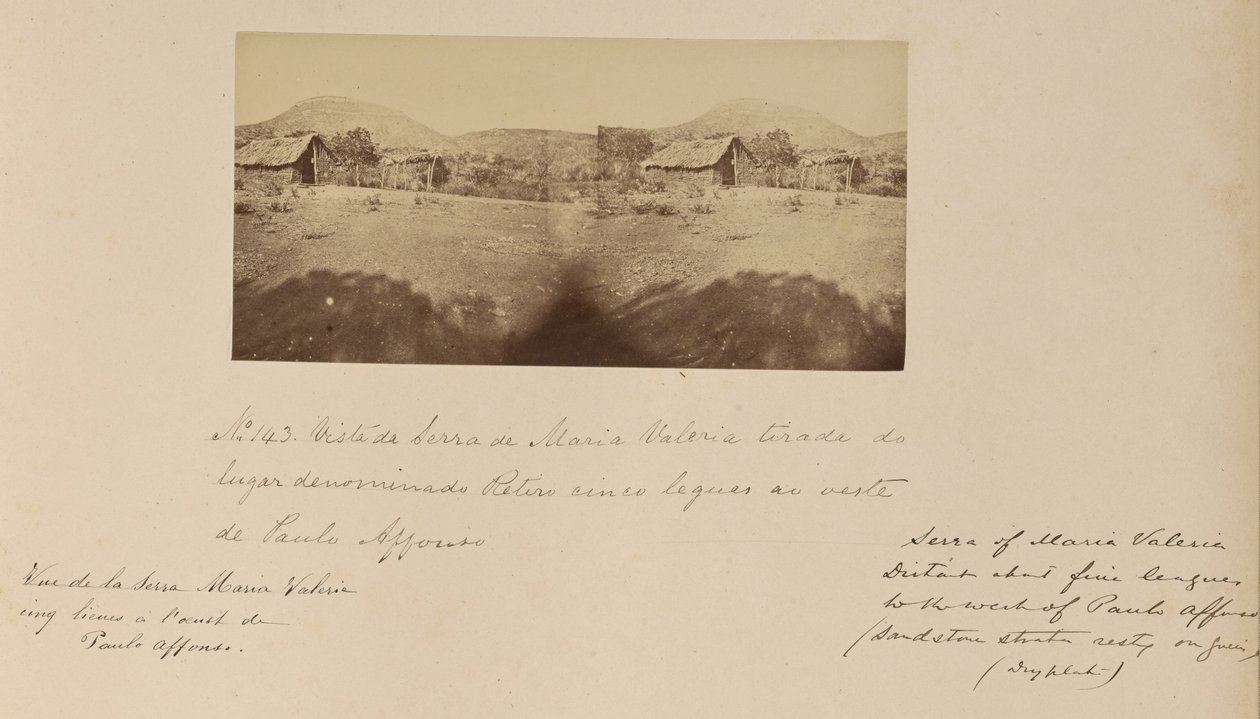 No. 143. Vista da Serra de Maria Valeria tirada do
lugar denominado Retiro cinco leguas ao oeste
de Paulo Affonso
Vue de la Serra Maria Valeria
cinq lieues a l'ouest de
Paulo Affonso.
Serra of Maria Valeria
Distant about five leagues
to the west of Paulo Affonso
(Sandstone strata resting on gneiss)
(Dry plate)